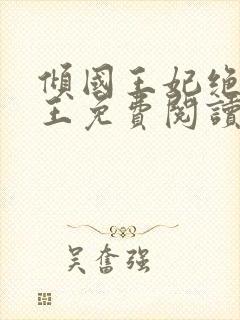 傾國王妃绝
王免費閱讀
吴奮强